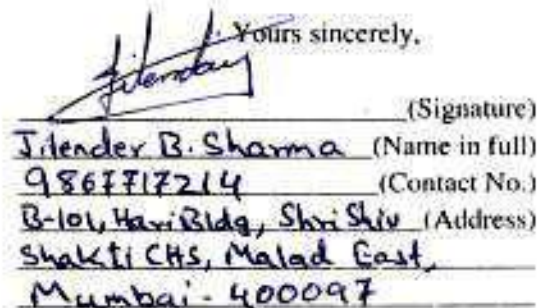 Yours sincerely,
Jitender
(Signature)
Jitender B. Sharma (Name in full)
9867717214 (Contact No.)
B-101, Hari Bldg, Shri Shiv (Address)
Shakti CHS, Malad East,
Mumbai - 400097